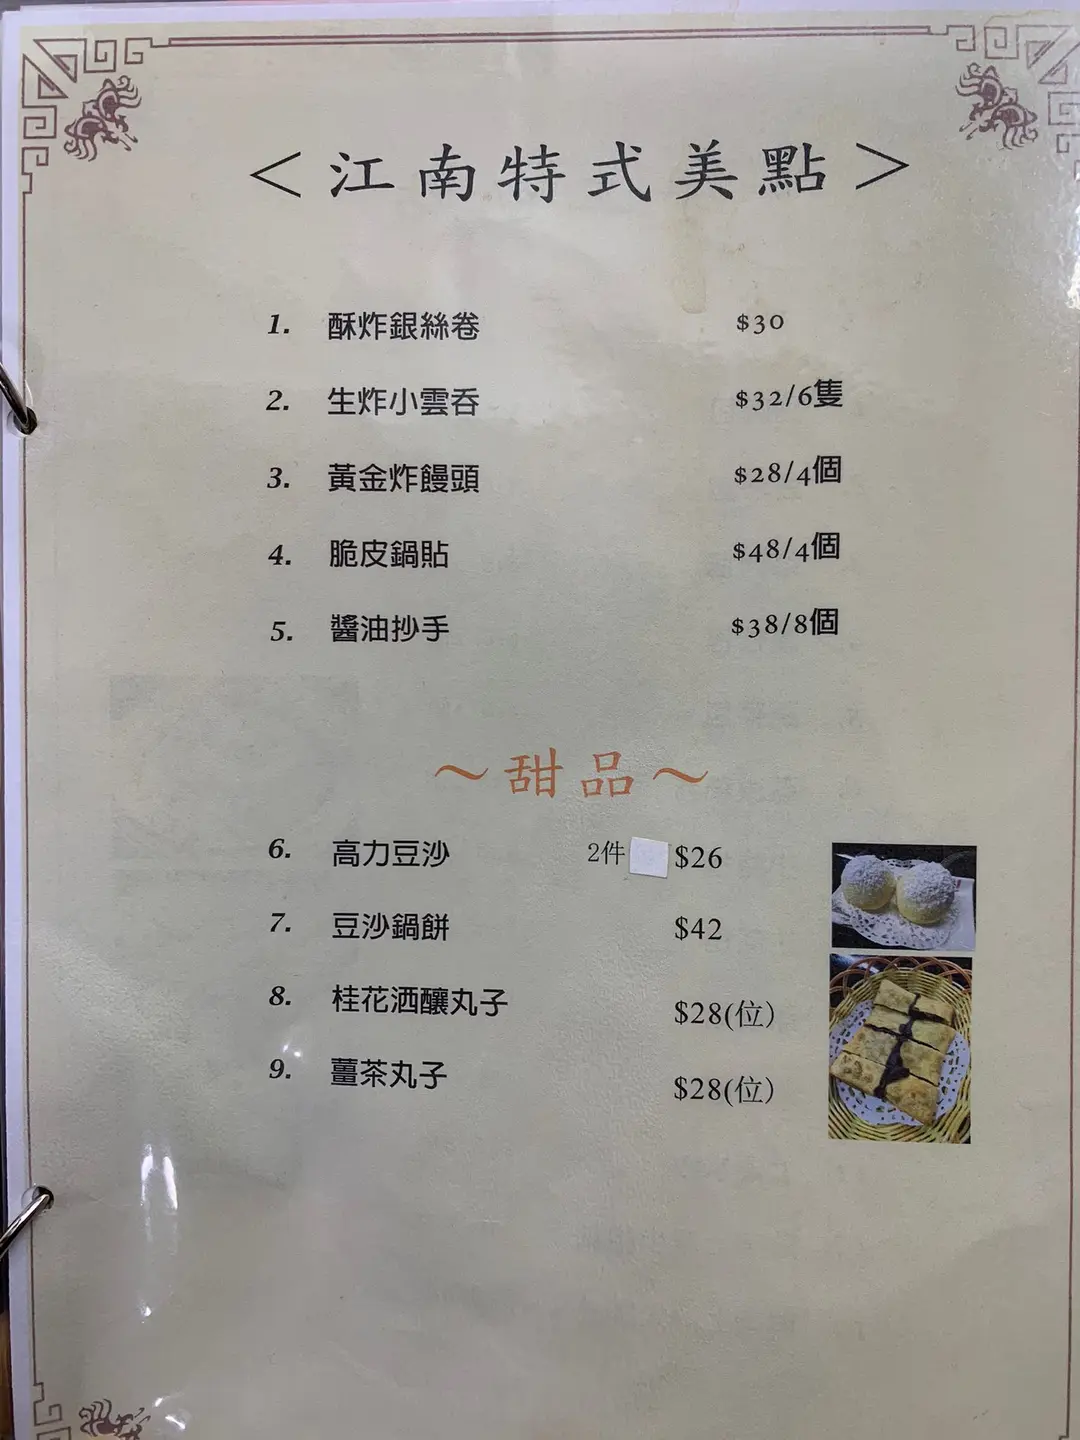 ＜江南特式美點＞
1. 酥炸銀絲卷 $30
2. 生炸小雲吞 $32/6隻
3. 黃金炸饅頭 $28/4個
4. 脆皮鍋貼 $48/4個
5. 醬油抄手 $38/8個
～甜品～
6. 高力豆沙 2件 $26
7. 豆沙鍋餅 $42
8. 桂花洒釀丸子 $28(位)
9. 薑茶丸子 $28(位)